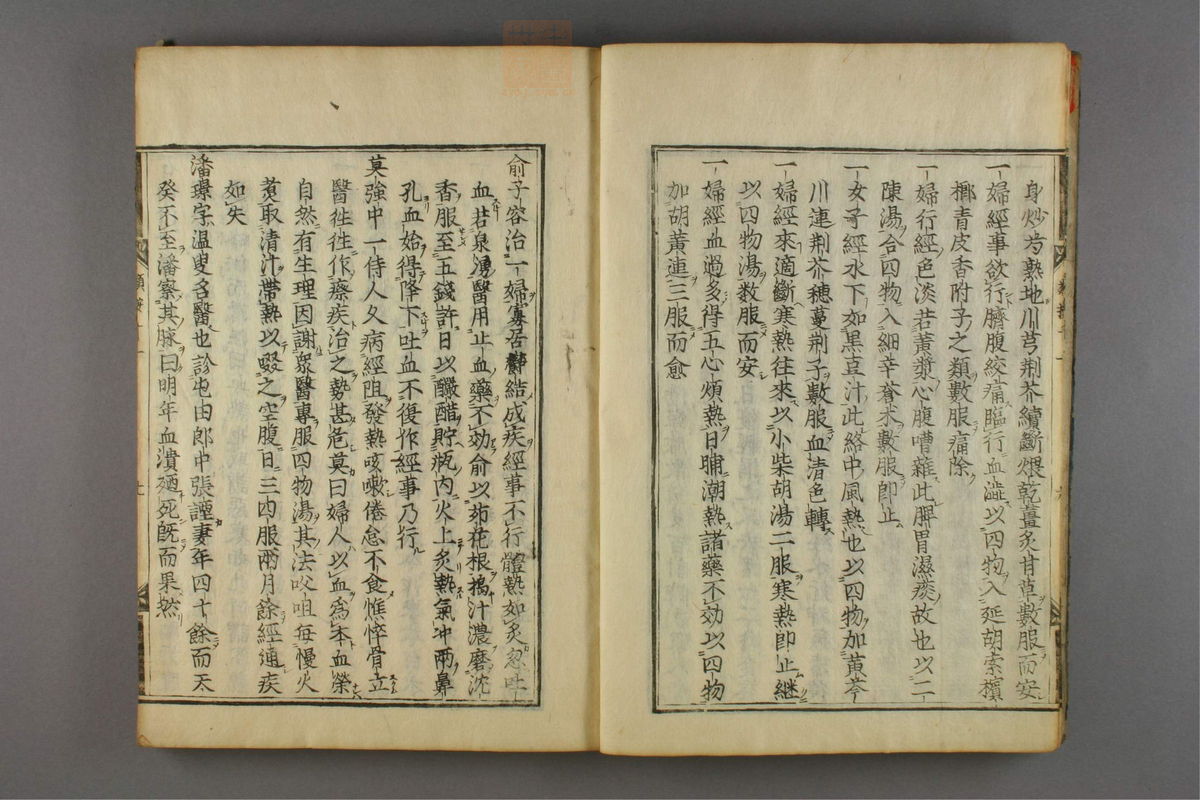 身炒芍熟地川芎荆芥續斷煨乾薑炙甘草數服而安
一婦經事欲行臍腹絞痛臨行血澁以四物入延胡索檳
榔青皮香附子之類數服痛除
一婦行經色淡若黄漿心腹嘈雜此脾胃濕痰故也以二
陳湯合四物入細辛蒼朮數服即止
一女子經水下如黒豆汁此絡中風熱也以四物加黄芩
川連荆芥穂蔓荆子數服血清色轉
一婦經來適斷寒熱往來以小柴胡湯二服寒熱即止継
以四物湯数服而安
一婦經血過多得五心煩熱日晡潮熱諸藥不効以四物
加胡黄連三服而愈
俞子容治一婦寡居欝結成疾經事不行體熱如炙忽吐
血若泉湧醫用止血藥不効俞以茆花根搗汁濃磨沈
香服至五錢許日以釅醋貯瓶内火上炙熱氣冲兩鼻
孔血始得降下吐血不復作經事乃行
莫強中一侍人久病經阻發熱咳嗽倦怠不食憔悴骨立
醫徃徃作瘵疾治之勢甚危莫曰婦人以血為本血榮
自然有生理因謝衆醫專服四物湯其法㕮咀毎慢火
煑取清汁帶熱以啜之空腹日三四服兩月餘經通疾
如失
潘璟字温叟名醫也診屯田郎中張諲妻年四十餘而天
癸不至潘察其脉曰明年血潰廼死既而果然